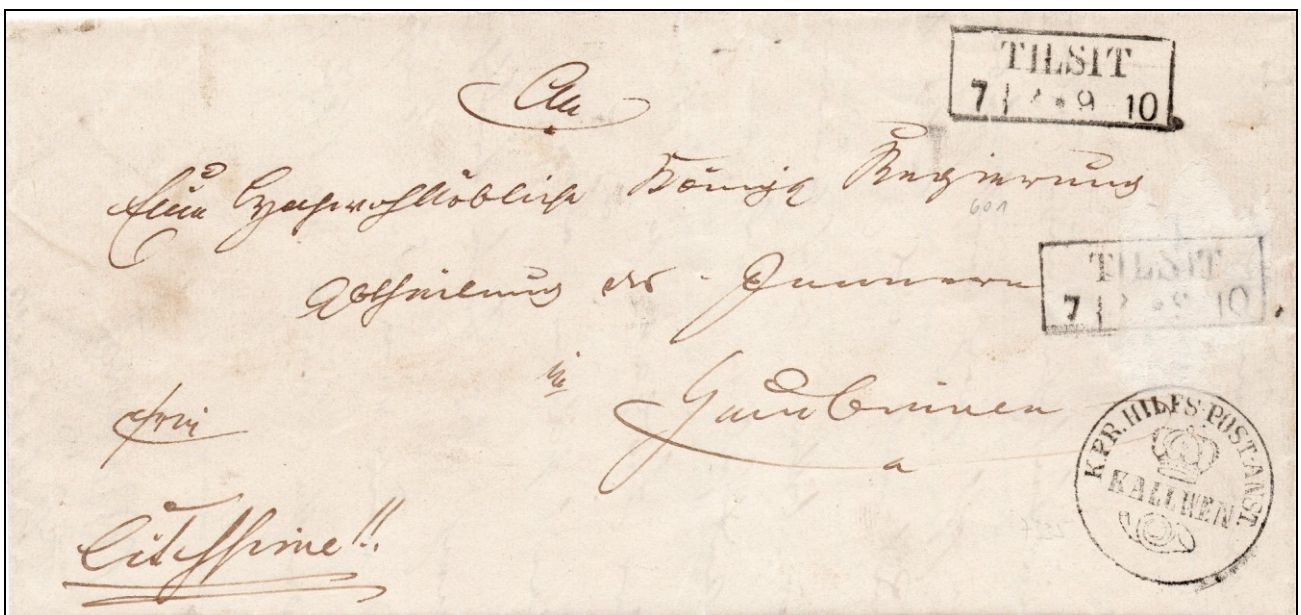 TILSIT
7 9 10
An
Eine Hochwohllöbliche Königl Regierung
601
Abtheilung des Innern
TILSIT
7 10
in
Gumbinnen
frei
citissime!!
K.PR.HILFS-POST-ANST.
KALLWEN